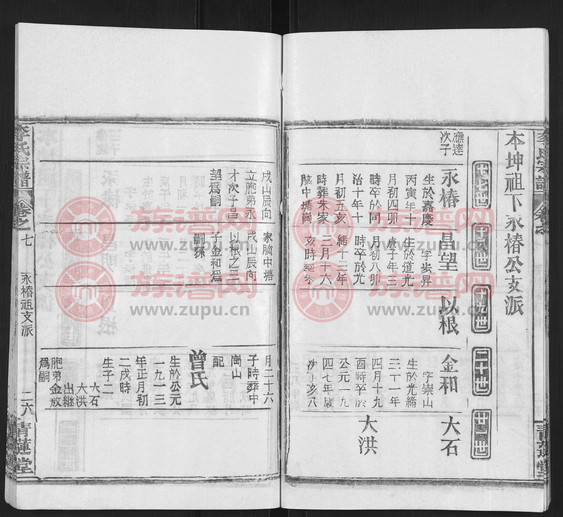 本坤祖下永椿公支派
十七世
十八世
十九世
二十世
廿一世
應達
次子
永椿
生於嘉慶
丙寅年十
月初四卯
時卒於同
治十年十
月初五亥
時葬朱家
腦中塘
戌山辰向
立胞弟永
才次子昌
望爲嗣
昌望
字步昇
生於道光
庚子年三
月初八卯
時卒於光
緒十二年
二月十六
亥時葬
家腦中塘
戌山辰向
以根之三
子金和爲
嗣孫
以根
金和
字崇山
生於光緒
三十一年
四月十九
酉時卒於
公元一九
四七年歲
次丁亥八
月二十六
子時葬中
崗山
配
曾氏
生於公元
一九一三
年正月初
二戌時
生子二
大石
大洪
出繼
胞弟金放
爲嗣
大石
大洪
李氏宗譜
卷之七
永椿祖支派
二六
青蓮堂
族谱网
www.zupu.cn